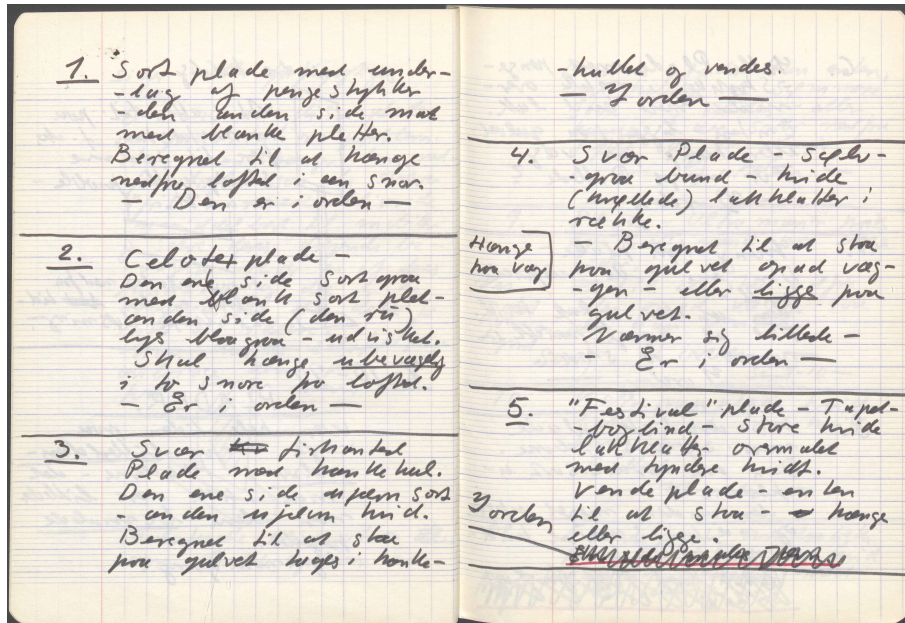 1. Sort plade med under-
-lag af pengestykker
-den anden side mat
med blanke pletter.
Beregnet til at hænge
nedfra loftet i een snor.
— Den er i orden —
2. Celotex plade -
Den ene side sortgraa
med blank sort plet-
anden side (den rü)
lys blaagraa - udvisket.
Skal hænge ubevægelig
i to snore fra loftet.
— Er i orden —
3. Svær firkantet
Plade med hankehul.
Den ene side ujævn sort
- anden ujævn hvid.
Beregnet til at staa
paa gulvet tages i hanke-
-hullet og vendes.
— I orden —
4. Svær Plade - Sølv-
-graa bund - hvide
lakklatter i
række.
Hænge
paa væg
— Beregnet til at staa
paa gulvet opad væg-
-gen - eller ligge paa
gulvet.
Nærmer sig billede -
- Er i orden —
5. "Festival" plade - Tapet-
-bog bind - store hvide
lakklatter overmalet
med tyndere hvidt.
Vendeplade - enten
I orden
til at staa - hænge
eller ligge.